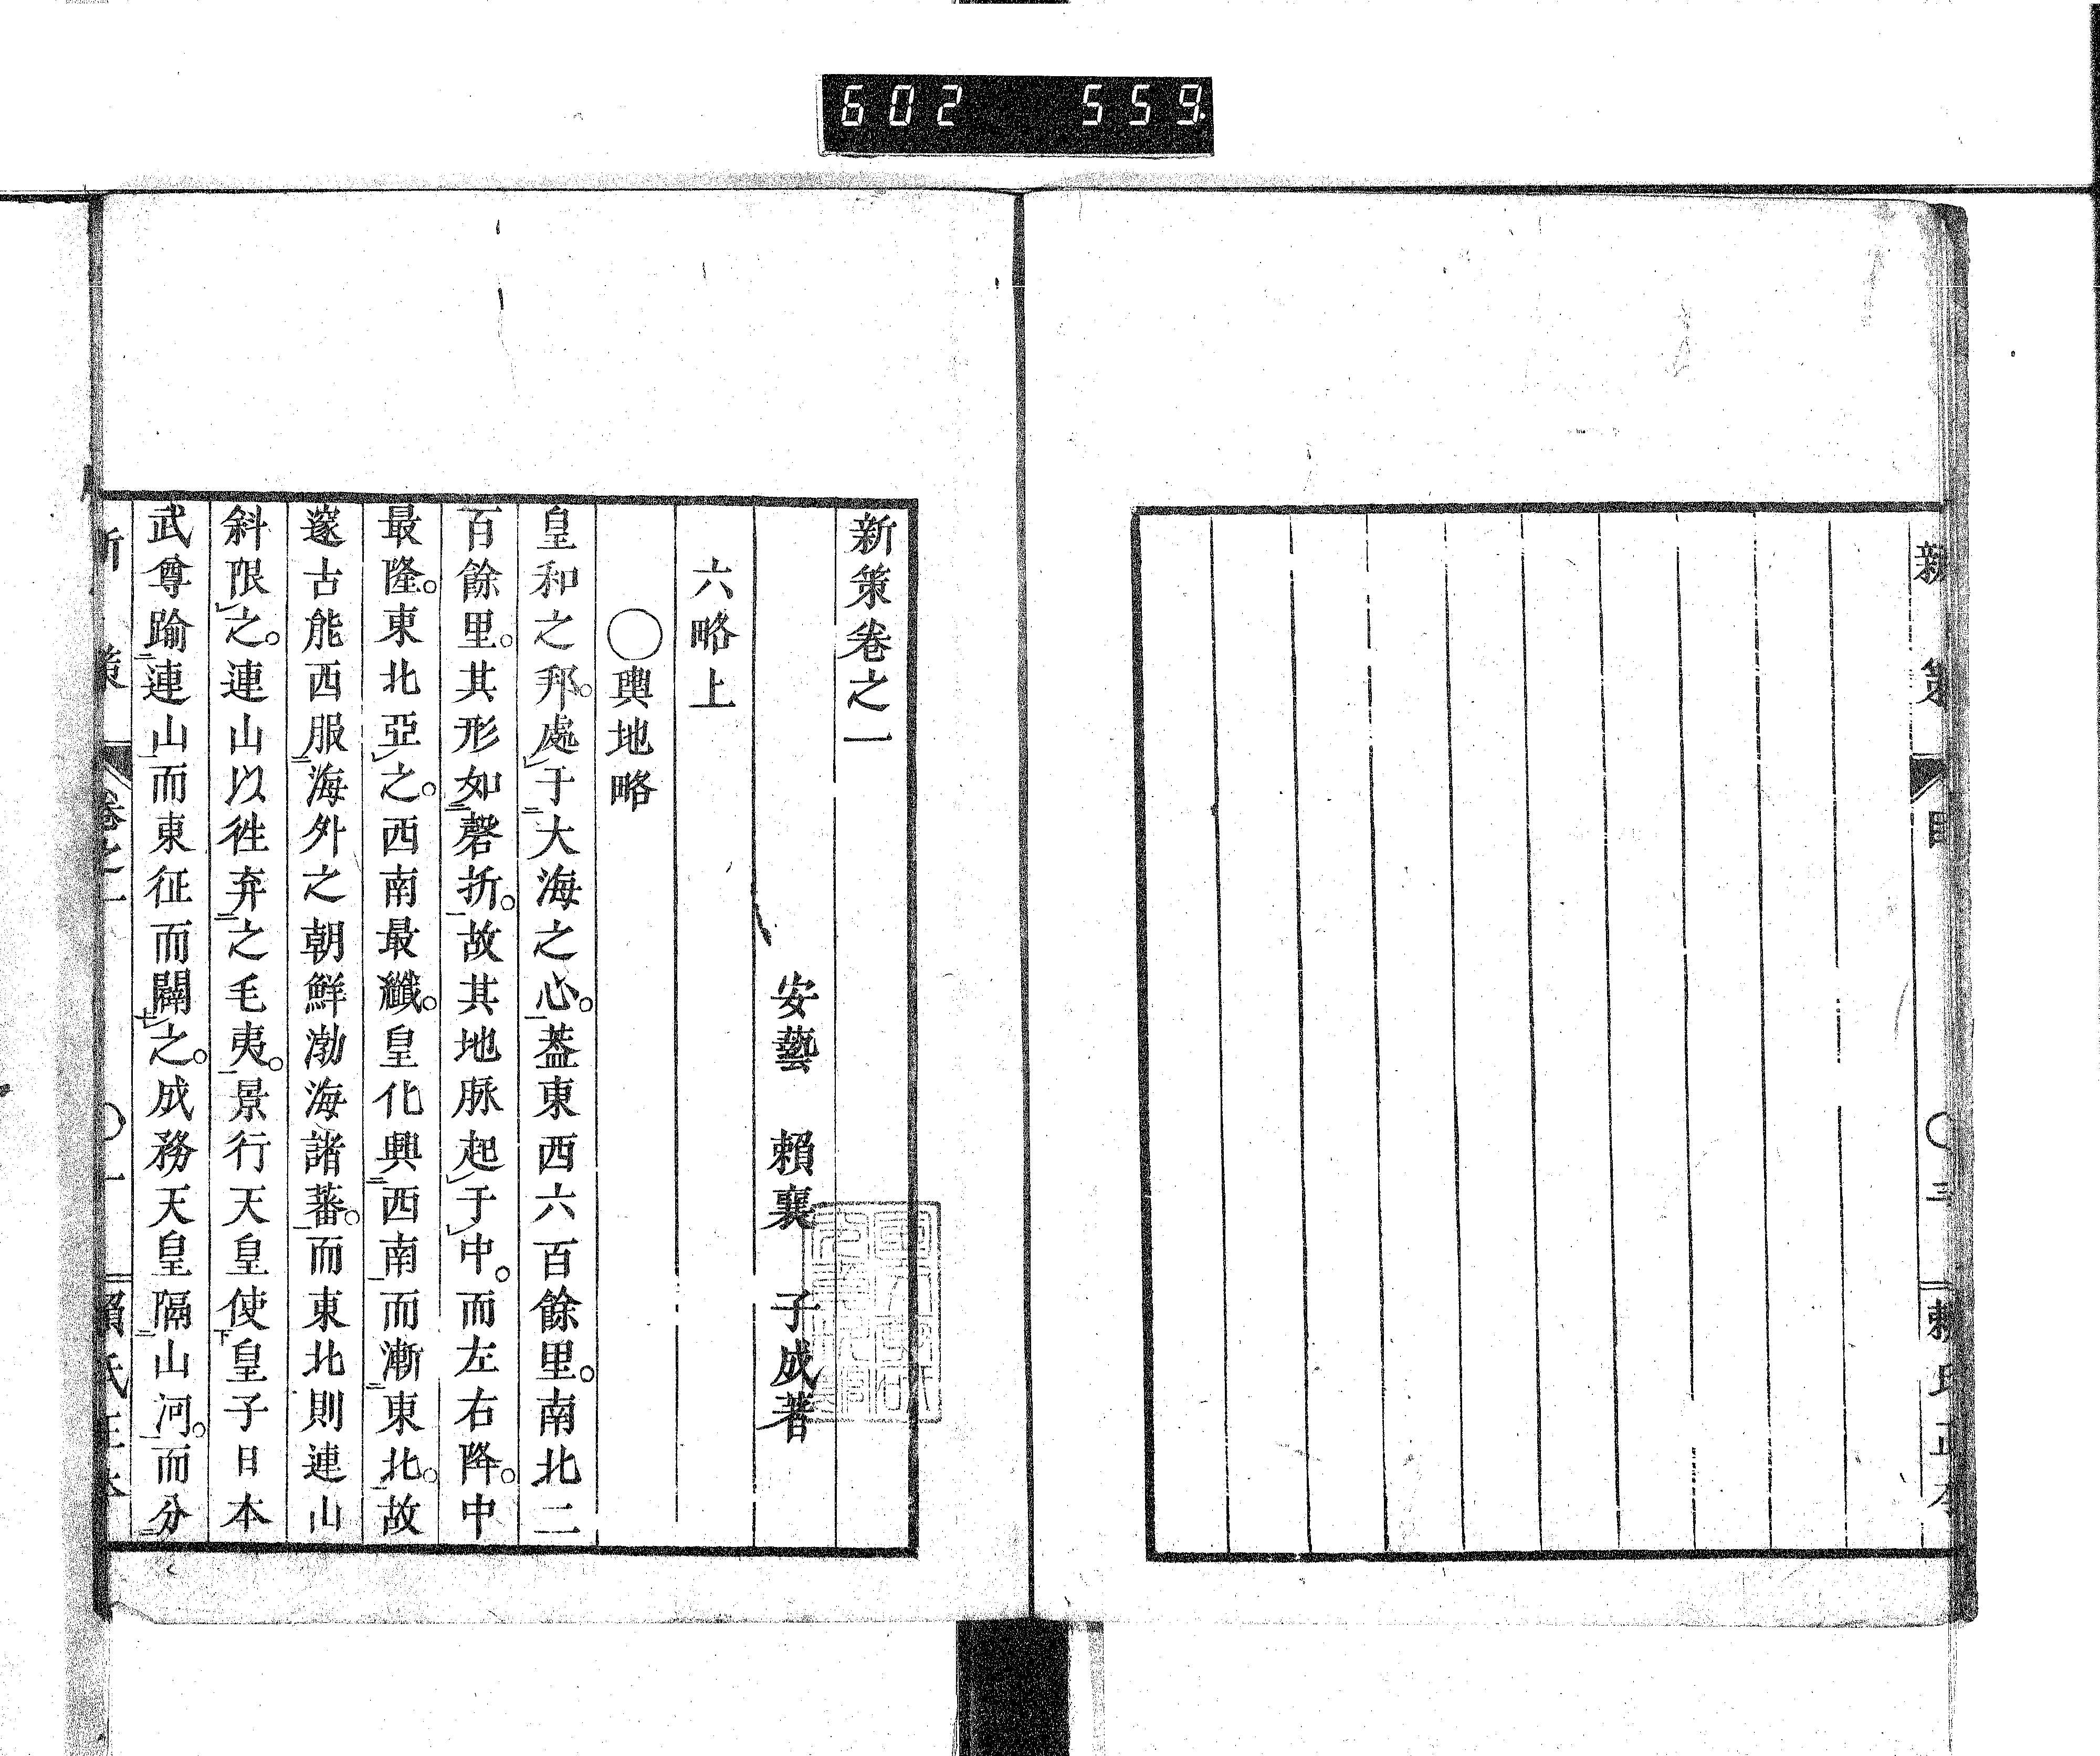 602 559
新策 目 〇三 賴氏正本
新策卷之一
安藝 賴襄 子成著
六略上
〇輿地略
皇和之邦。處于大海之心。蓋東西六百餘里。南北二
百餘里。其形如磬折。故其地脉起于中。而左右降。中
最隆。東北亞之。西南最纖。皇化興西南而漸東北。故
邃古能西服海外之朝鮮渤海諸蕃。而東北則連山
斜限之。連山以徃弃之毛夷。景行天皇使皇子日本
武尊踰連山而東征而闢之。成務天皇隔山河。而分
新策 卷之一 〇一 賴氏正本